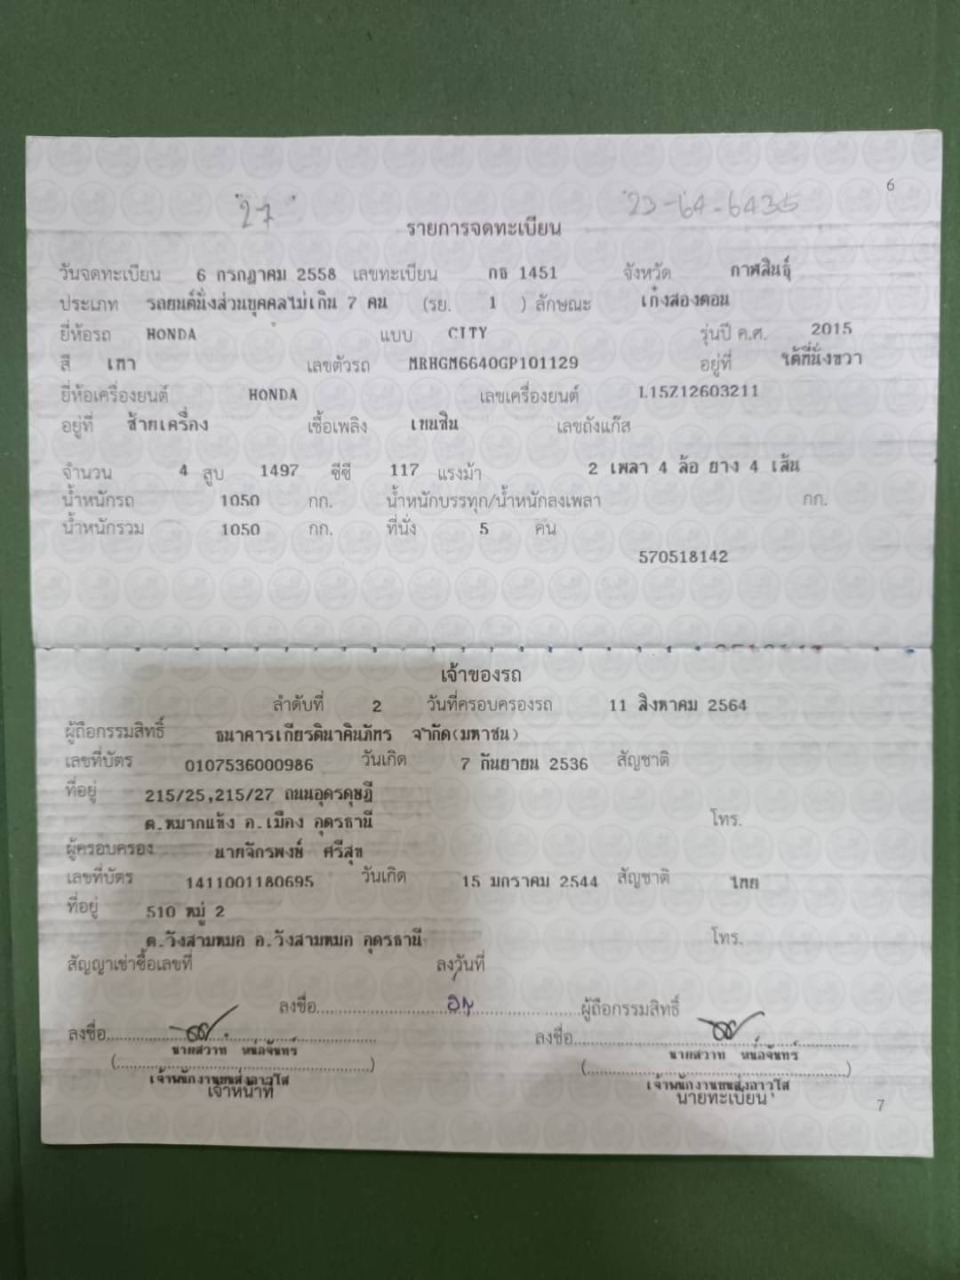 6
"27" 23-64-6435
รายการจดทะเบียน
วันจดทะเบียน 6 กรกฎาคม 2558 เลขทะเบียน กธ 1451 จังหวัด กาฬสินธุ์
ประเภท รถยนต์นั่งส่วนบุคคลไม่เกิน 7 คน (รย. 1 ) ลักษณะ เก๋งสองตอน
ยี่ห้อรถ HONDA แบบ CITY รุ่นปี ค.ศ. 2015
สี เทา เลขตัวรถ MRHGM6640GP101129 อยู่ที่ ใต้ที่นั่งขวา
ยี่ห้อเครื่องยนต์ HONDA เลขเครื่องยนต์ L15Z12603211
อยู่ที่ ซ้ายเครื่อง เชื้อเพลิง เบนซิน เลขถังแก๊ส
จำนวน 4 สูบ 1497 ซีซี 117 แรงม้า 2 เพลา 4 ล้อ ยาง 4 เส้น
น้ำหนักรถ 1050 กก. น้ำหนักบรรทุก/น้ำหนักลงเพลา กก.
น้ำหนักรวม 1050 กก. ที่นั่ง 5 คน
570518142
เจ้าของรถ
ลำดับที่ 2 วันที่ครอบครองรถ 11 สิงหาคม 2564
ผู้ถือกรรมสิทธิ์ ธนาคารเกียรตินาคินภัทร จำกัด(มหาชน)
เลขที่บัตร 0107536000986 วันเกิด 7 กันยายน 2536 สัญชาติ
ที่อยู่ 215/25,215/27 ถนนอุดรดุษฎี
ต.หมากแข้ง อ.เมือง อุดรธานี โทร.
ผู้ครอบครอง นายจักรพงษ์ ศรีสุข
เลขที่บัตร 1411001180695 วันเกิด 15 มกราคม 2544 สัญชาติ ไทย
ที่อยู่ 510 หมู่ 2
ต.วังสามหมอ อ.วังสามหมอ อุดรธานี โทร.
สัญญาเช่าซื้อเลขที่ ลงวันที่
ลงชื่อ ผู้ถือกรรมสิทธิ์
ลงชื่อ ลงชื่อ
นายสวาท หน่อจันทร์ นายสวาท หน่อจันทร์
( ) ( )
เจ้าพนักงานขนส่งอาวุโส เจ้าพนักงานขนส่งอาวุโส
เจ้าหน้าที่ นายทะเบียน
7